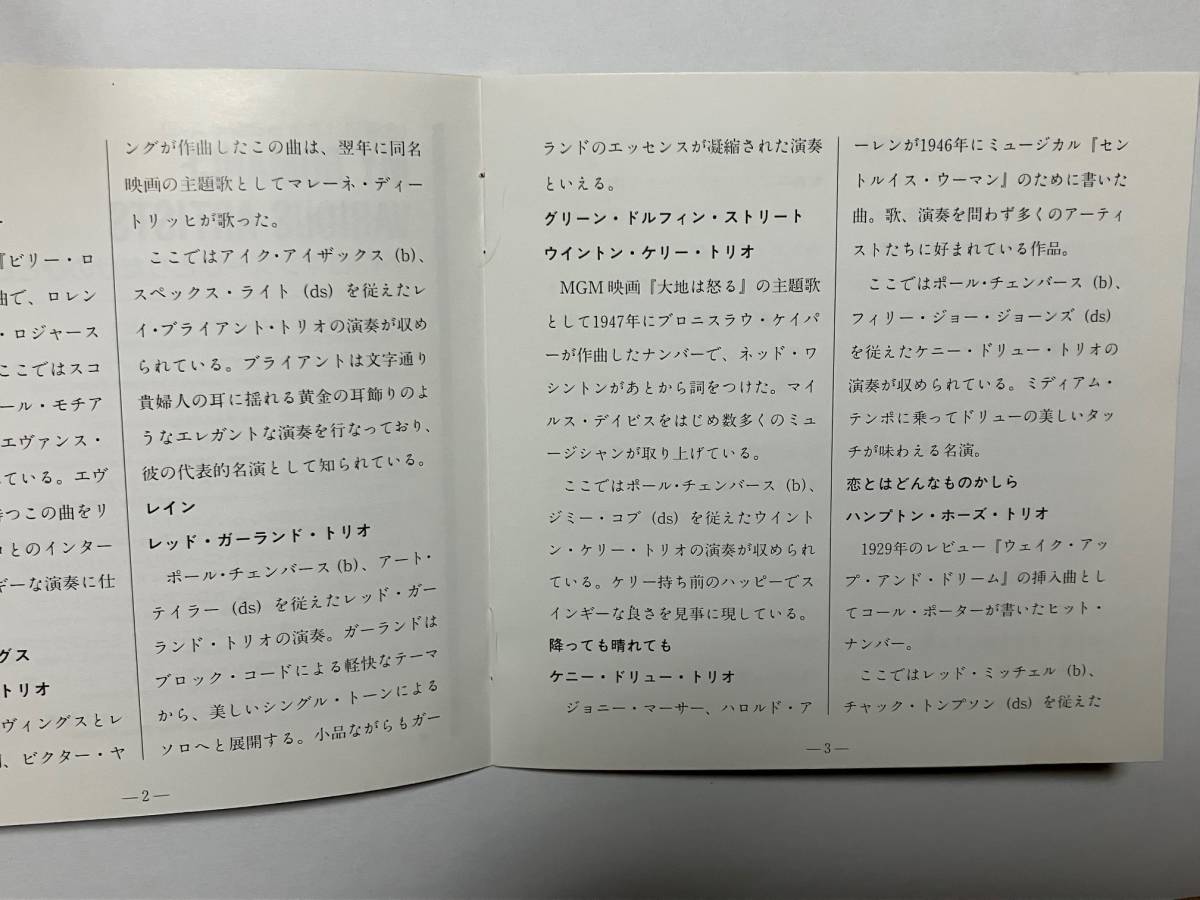 ー
『ビリー・ロ
曲で、ロレン
・ロジャース
ここではスコ
ール・モチア
エヴァンス・
ている。エヴ
持つこの曲をリ
ロとのインター
ギーな演奏に仕
グス
トリオ
ヴィングスとレ
、ビクター・ヤ
ングが作曲したこの曲は、翌年に同名
映画の主題歌としてマレーネ・ディー
トリッヒが歌った。
ここではアイク・アイザックス(b)、
スペックス・ライト(ds)を従えたレ
イ・ブライアント・トリオの演奏が収め
られている。ブライアントは文字通り
貴婦人の耳に揺れる黄金の耳飾りのよ
うなエレガントな演奏を行なっており、
彼の代表的名演として知られている。
レイン
レッド・ガーランド・トリオ
ポール・チェンバース(b)、アート・
テイラー(ds)を従えたレッド・ガー
ランド・トリオの演奏。ガーランドは
ブロック・コードによる軽快なテーマ
から、美しいシングル・トーンによる
ソロへと展開する。小品ながらもガー
―2―
ランドのエッセンスが凝縮された演奏
といえる。
グリーン・ドルフィン・ストリート
ウイントン・ケリー・トリオ
MGM映画『大地は怒る』の主題歌
として1947年にブロニスラウ・ケイパ
ーが作曲したナンバーで、ネッド・ワ
シントンがあとから詞をつけた。マイ
ルス・デイビスをはじめ数多くのミュ
ージシャンが取り上げている。
ここではポール・チェンバース(b)、
ジミー・コブ(ds)を従えたウイント
ン・ケリー・トリオの演奏が収められ
ている。ケリー持ち前のハッピーでス
インギーな良さを見事に現している。
降っても晴れても
ケニー・ドリュー・トリオ
ジョニー・マーサー、ハロルド・ア
ーレンが1946年にミュージカル『セン
トルイス・ウーマン』のために書いた
曲。歌、演奏を問わず多くのアーティ
ストたちに好まれている作品。
ここではポール・チェンバース(b)、
フィリー・ジョー・ジョーンズ(ds)
を従えたケニー・ドリュー・トリオの
演奏が収められている。ミディアム・
テンポに乗ってドリューの美しいタッ
チが味わえる名演。
恋とはどんなものかしら
ハンプトン・ホーズ・トリオ
1929年のレビュー『ウェイク・アッ
プ・アンド・ドリーム』の挿入曲とし
てコール・ポーターが書いたヒット・
ナンバー。
ここではレッド・ミッチェル(b)、
チャック・トンプソン(ds)を従えた
―3―